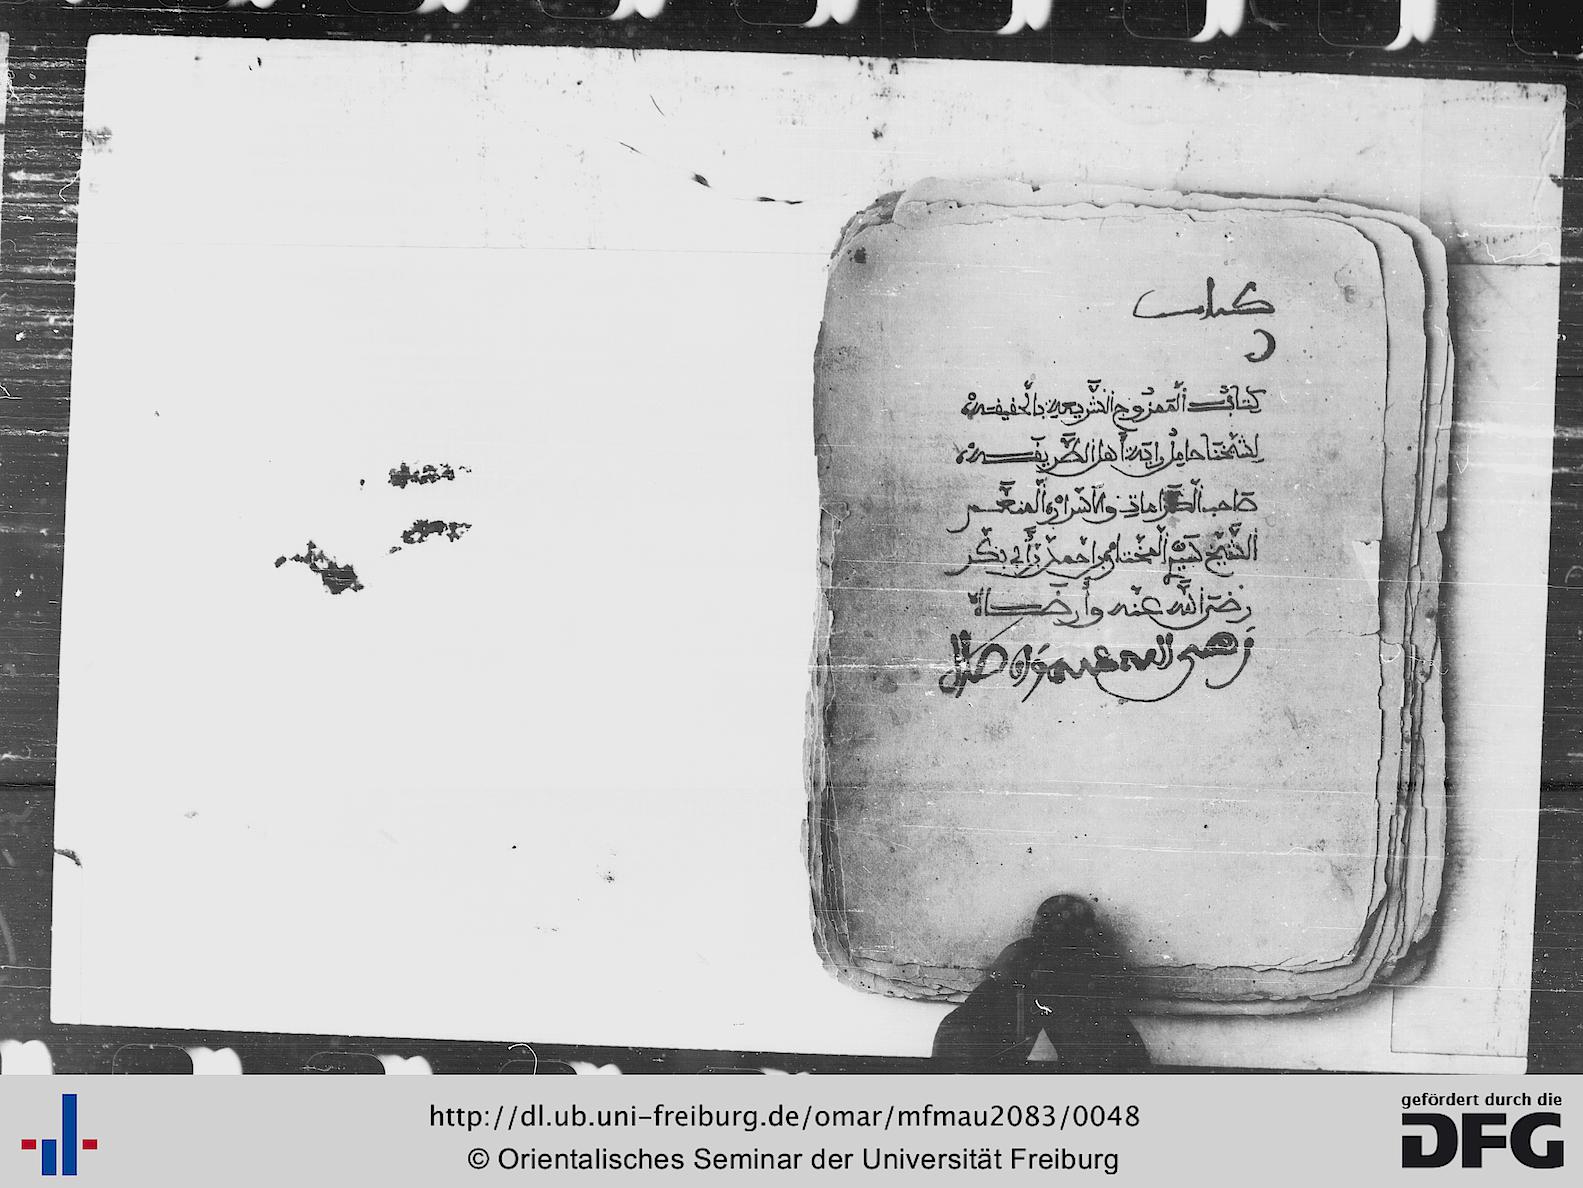 كتاب
كتاب الممزوج الشريعة بالحقيقة
لشيخنا حامل راية أهل الطريقة
صاحب الكرامات والأسرار
الشيخ سيد المختار بن احمد بن أبي بكر
رضي الله عنه وأرضاه
رضي الله عنه
http://dl.ub.uni-freiburg.de/omar/mfmau2083/0048
© Orientalisches Seminar der Universität Freiburg
gefördert durch die
DFG